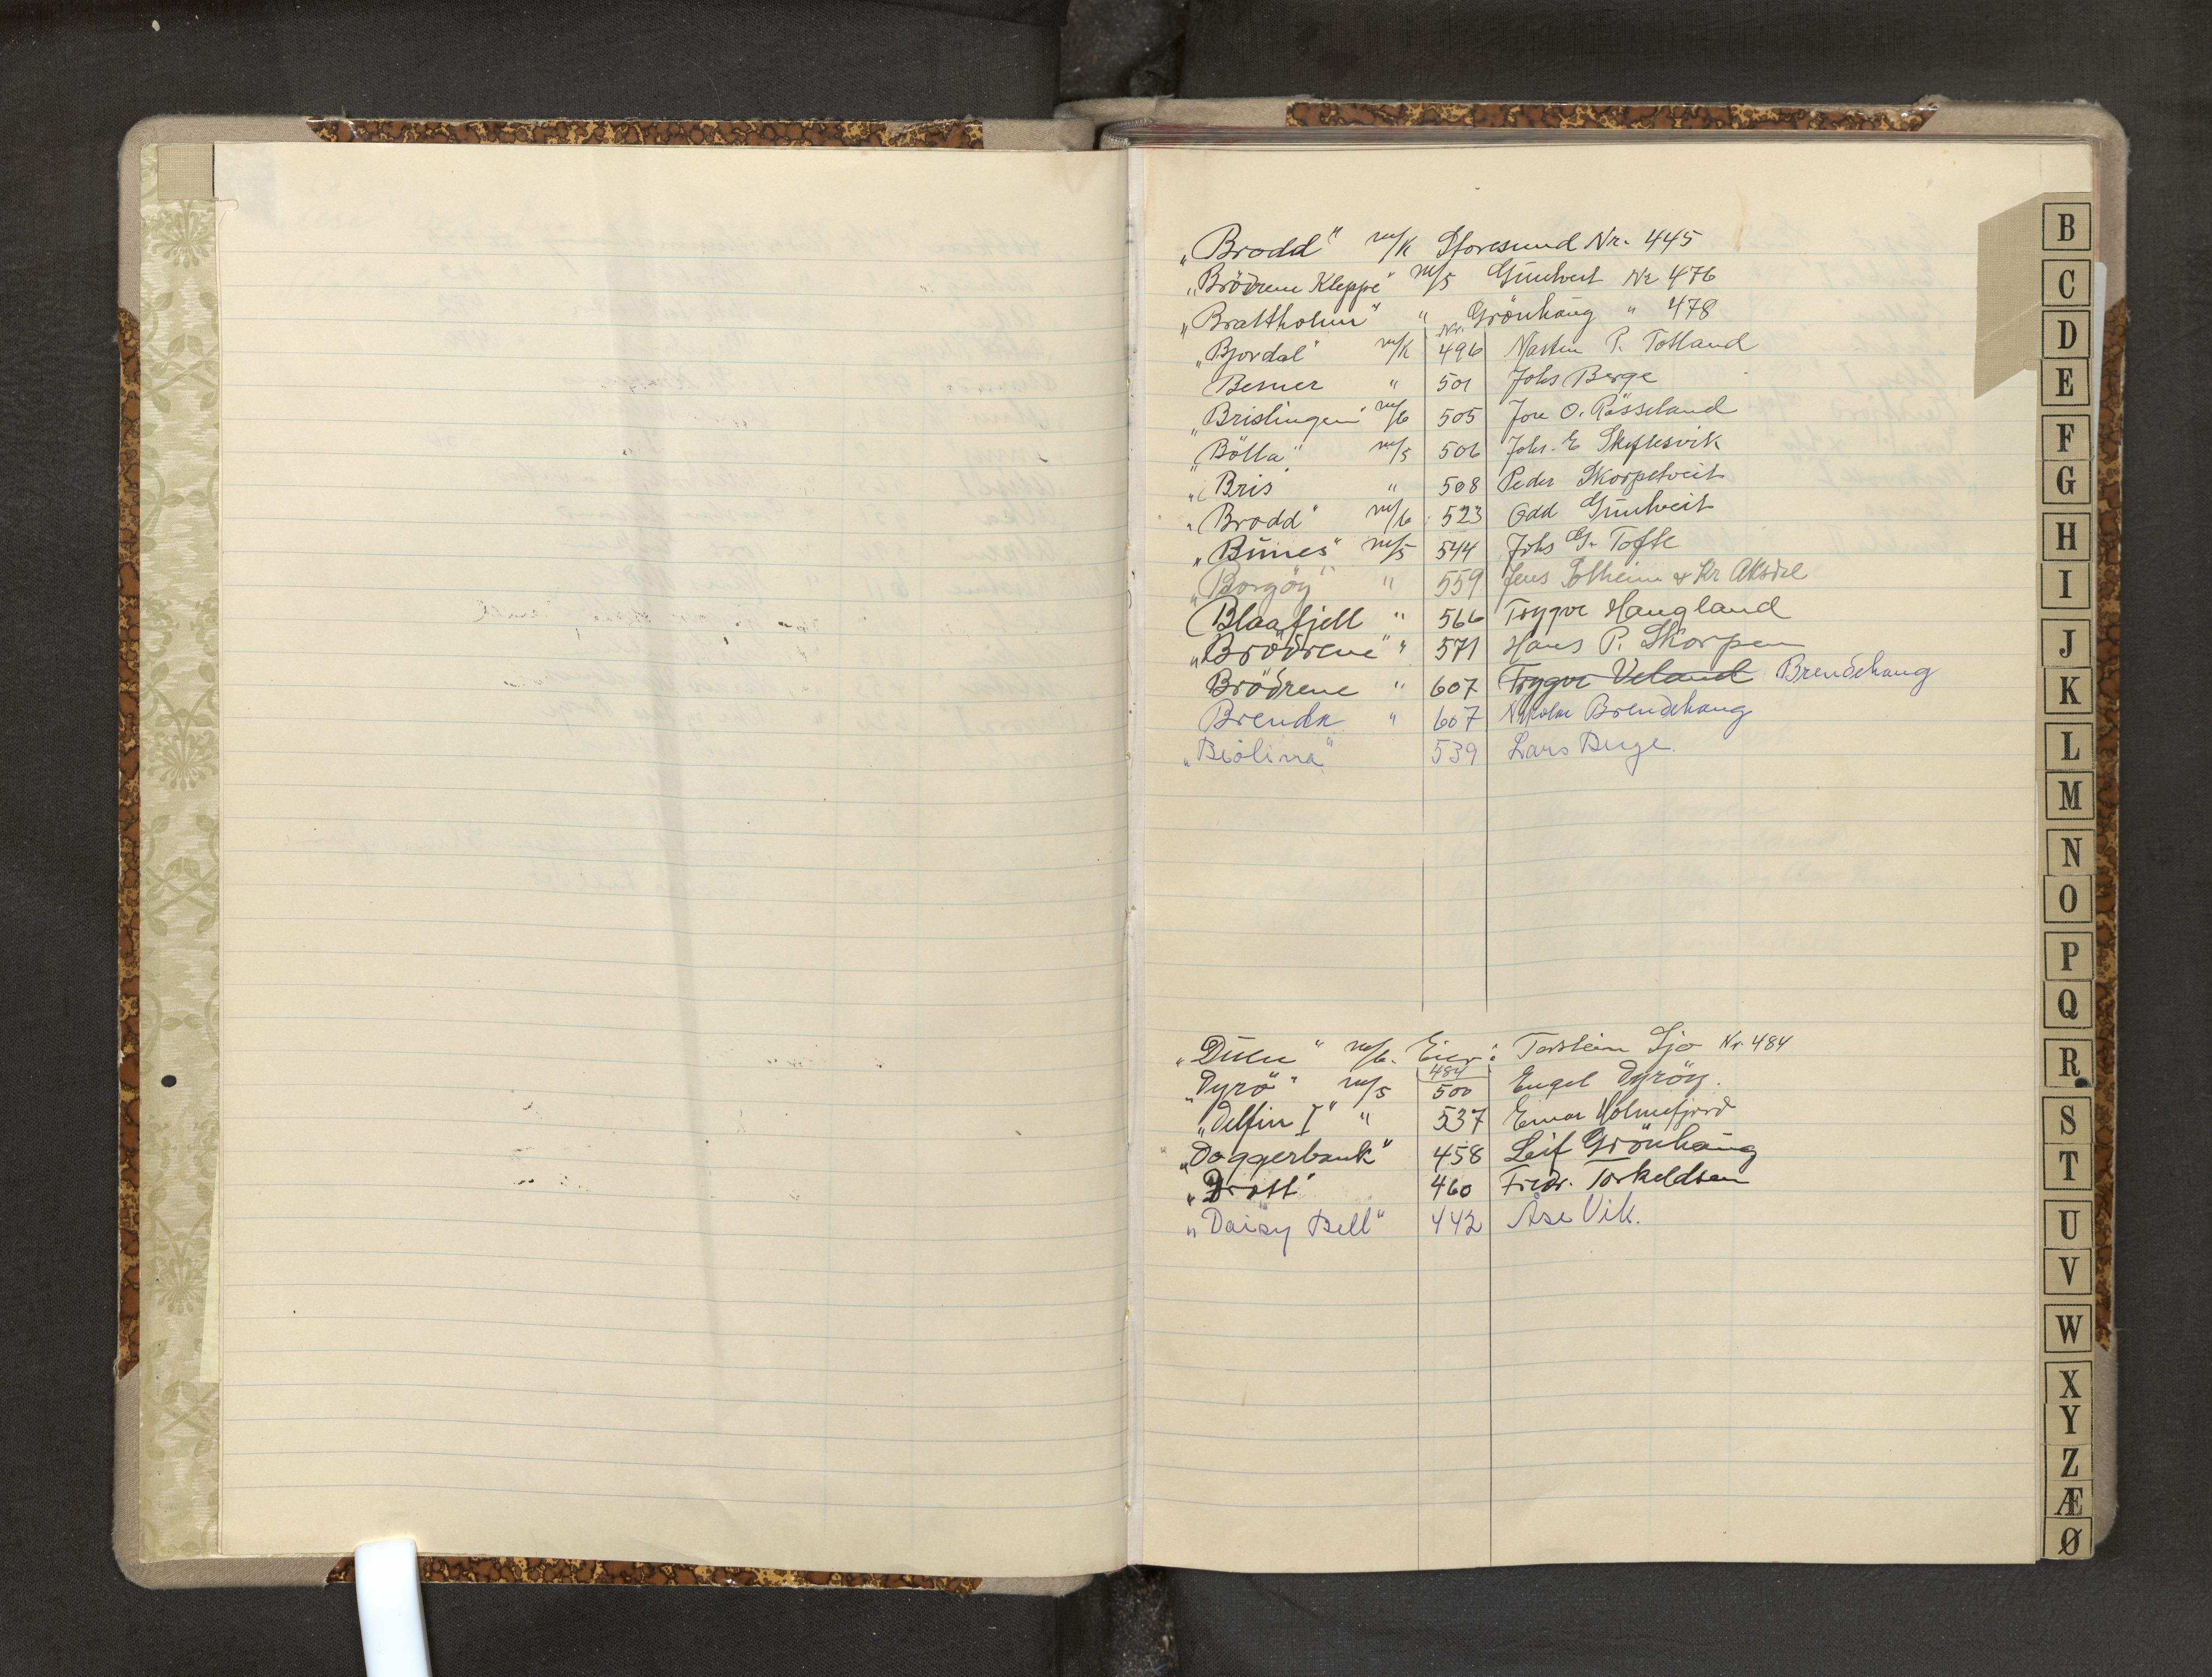 „Brodd" m/k Storesund Nr. 445
„Brödrene Kleppe" m/s Gunhveit Nr 476
„Brattholm" " Grönhaug " 478
Nr.
„Bjordal" m/k 496 Martin P. Totland
Besner " 501 Johs Berge
„Brislingen" m/b 505 Jon O. Røsseland
„Bölla" m/s 506 Johs. E Skiftesvik
„Bris " 508 Peder Skorpetveit
„Brodd" m/b 523 Odd Gunhveit
„Bunes" m/s 544 Johs G. Tofte
„Borgöy" " 559 Jens Solheim & Kr Aksdal
Blaafjell " 566 Trygve Haugland
„Brödrene" " 571 Hans P. Skorpen
Brödrene " 607 Trygve Veland Brendehaug
Brenda " 607 Nikolai Brendehaug
„Biolina" 539 Lars Berge.
„Duen" m/b. Eier: Torstein Sjo Nr. 484
484
„Dyrö" m/s 500 Engel Dyröy.
„Delfin I" " 537 Einar Holmefjord
„Doggerbank" 458 Leif Grönhaug
„Drott" 460 Fredr. Torkeldsen
„Daisy Bell" 442 Åse Vik.
B
C
D
E
F
G
H
I
J
K
L
M
N
O
P
Q
R
S
T
U
V
W
X
Y
Z
Æ
Ø